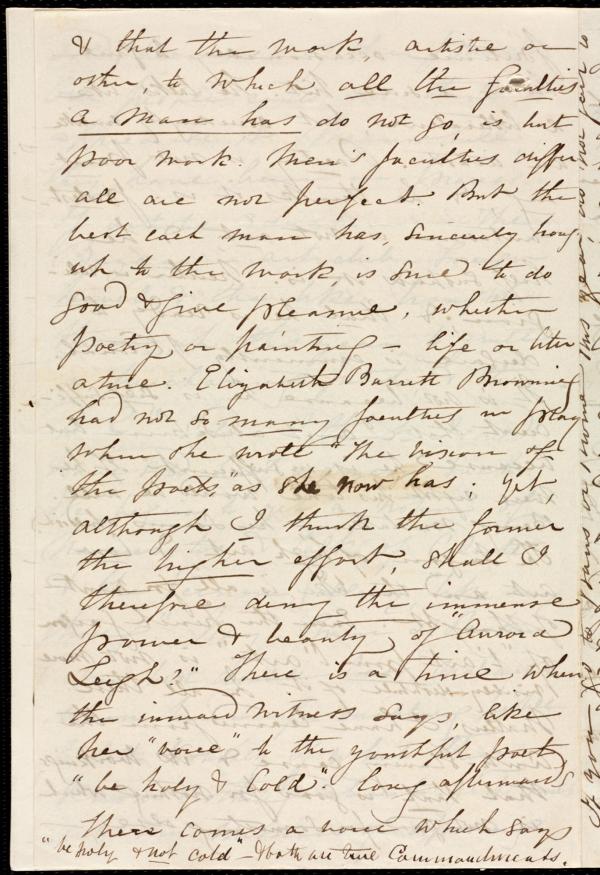 & that the work, artistic or
other, to which all the faculties
a man has do not go, is but
poor work. Men's faculties differ
all are not perfect. But the
best each man has, sincerely
up to the work, is sure to do
good & give pleasure, whether
poetry or painting – life or liter
ature. Elizabeth Barrett Browning
had not so many faculties in play
when she wrote "The Vision of
the Poets," as she now has; yet,
although I think the former
the higher effort, shall I
therefore deny the immense
power & beauty of "Aurora
Leigh?" There is a time when
the inward witness says, like
her "voice" to the youthful poet
"be holy & cold". Long afterwards
there comes a voice which says
"be holy & not cold" – & both are true Commandments.